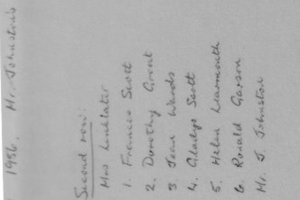 1956. Mr. Johnston's
Second row:
Mrs Linklater
1. Frances Scott
2. Dorothy Grant
3 Jean Wards
4. Gladys Scott
5. Helen Learmonth
6 Ronald Garson
Mr. J. Johnston